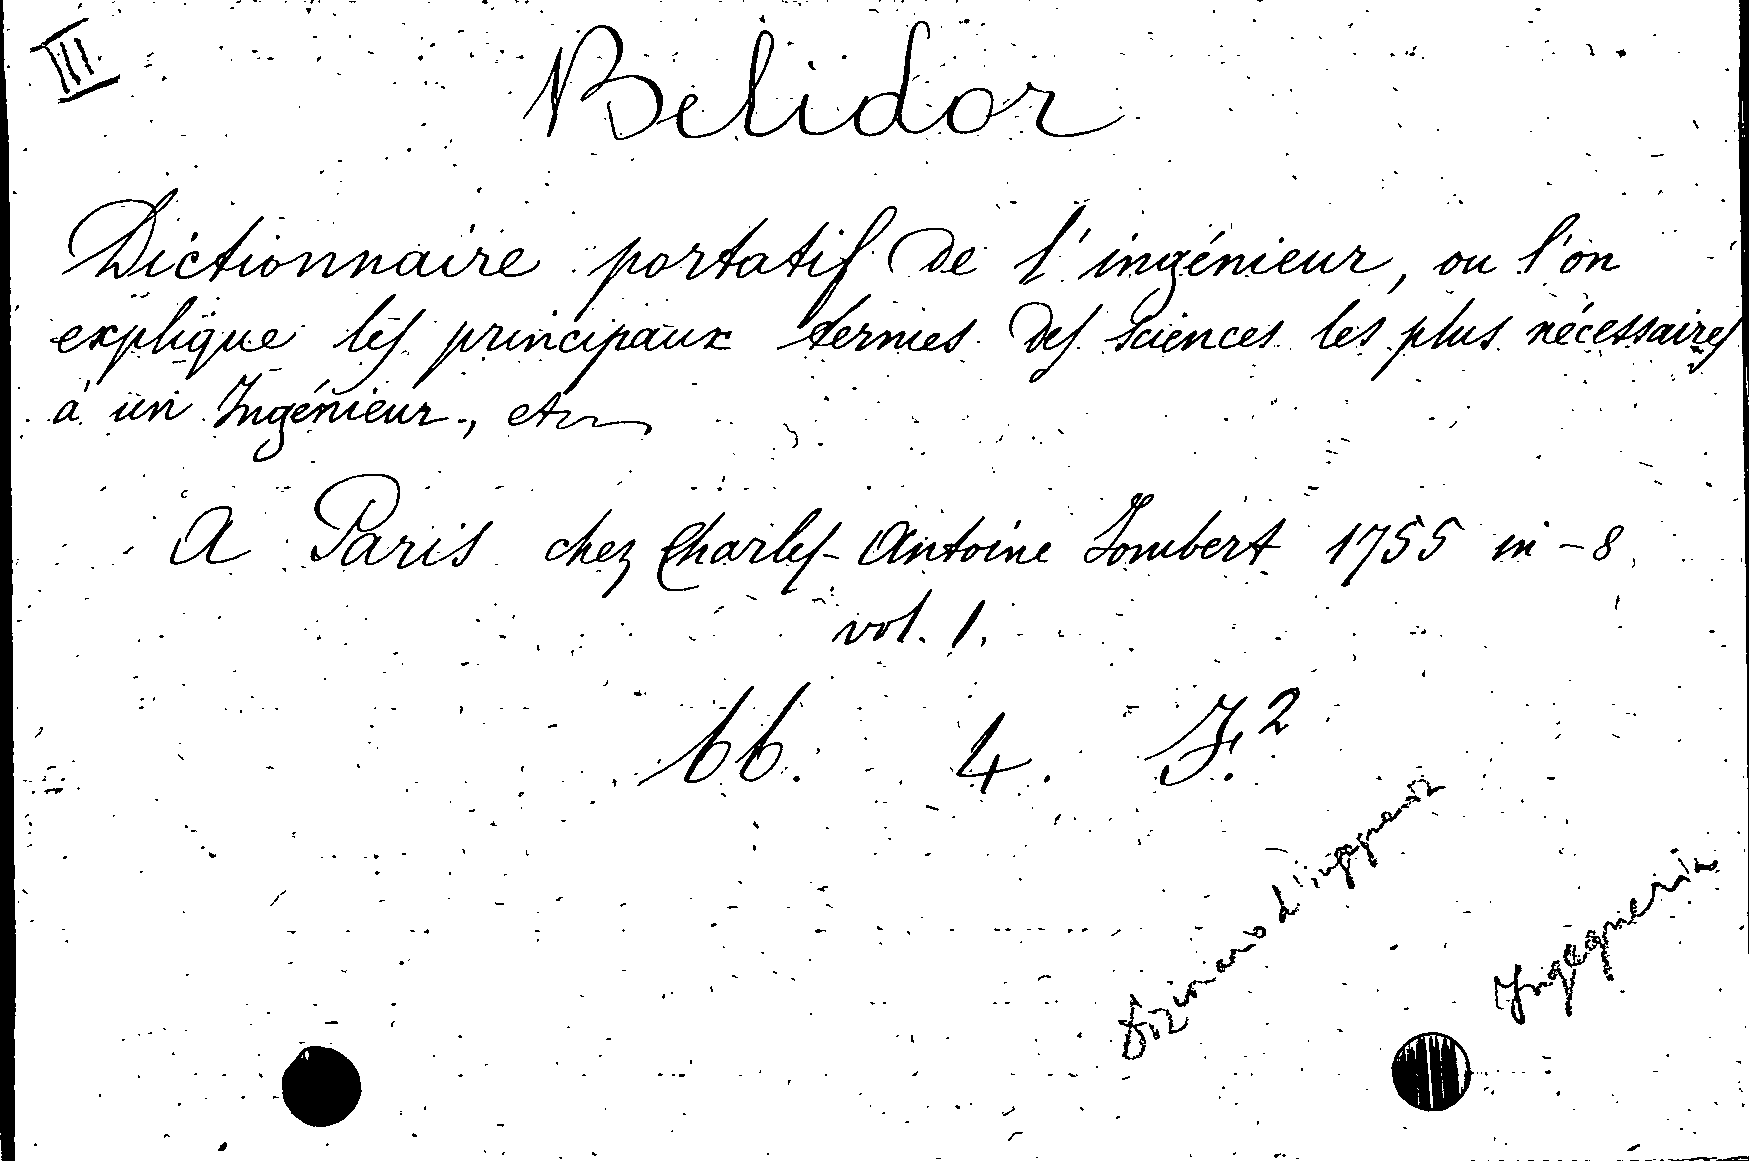 III.
Belidor
Dictionnaire portatif de l'ingénieur, ou l'on
explique les principaux termes des sciences les plus nécessaires
à un Ingénieur, etc
A Paris chez Charles-Antoine Jombert 1755 in-8
vol. 1.
bb. 4. F.²
dizionario d'ingegneria
Ingegneria